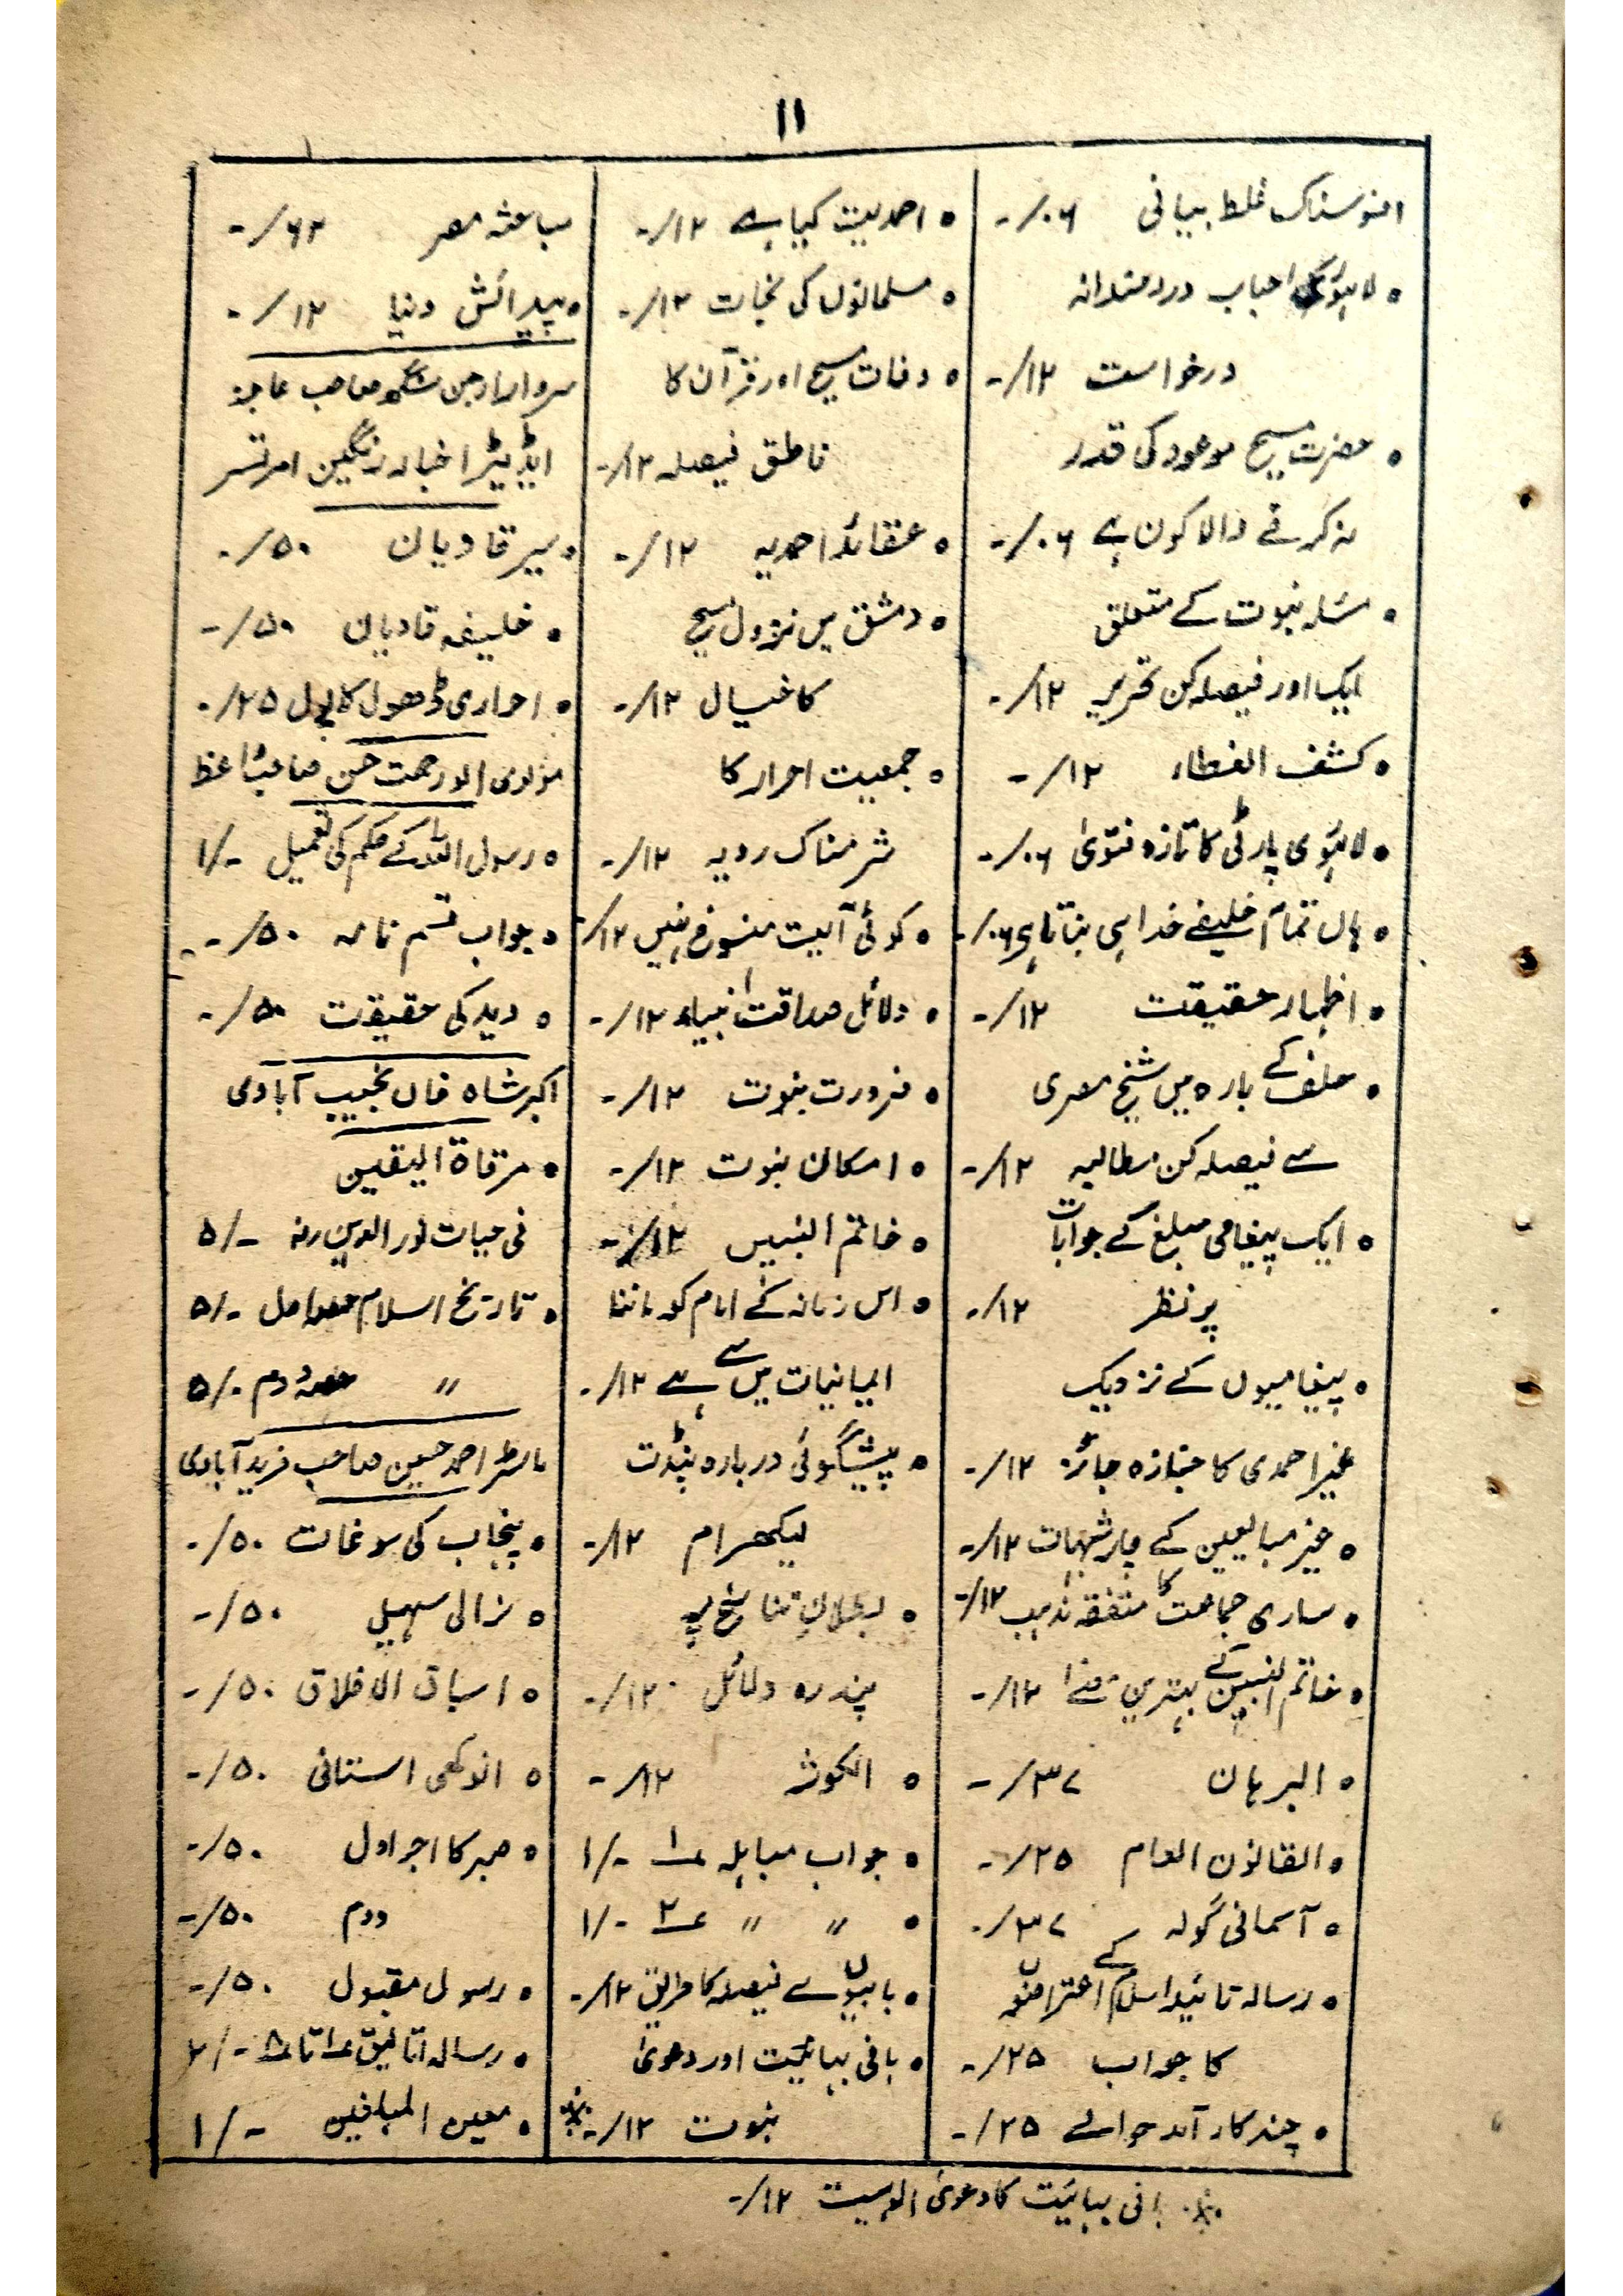 ۱۱
افسوسناک غلط بیانی ۰۶/-
• لاہوری احباب دردمندانہ
درخواست ۱۲/-
• حضرت مسیح موعود کی قدر
نہ کرنے والا کون ہے ۰۶/-
• مسئلہ نبوت کے متعلق
ایک اور فیصلہ کن تحریر ۱۲/-
• کشف الغطاء ۱۲/-
• لاہوری پارٹی کا تازہ فتویٰ ۰۶/-
• ہاں تمام خلیفے خدا ہی بناتا ہے ۰۶/-
• اظہار حقیقت ۱۲/-
• حلف کے بارہ میں شیخ مصری
سے فیصلہ کن مطالبہ ۱۲/-
• ایک پیغامی مبلغ کے جوابات
پر نظر ۱۲/-
• پیغامیوں کے نزدیک
غیر احمدی کا جنازہ جائز ۱۲/-
• غیر مبایعین کے چار شبہات ۱۲/-
• ساری جماعت کا متفقہ مذہب ۱۲/-
• خاتم النبیین کے بہترین معنے ۱۲/-
• البرہان ۳۷/-
• القانون العام ۲۵/-
• آسمانی گولہ ۳۷/-
• رسالہ تائید اسلام کے اعتراضوں
کا جواب ۲۵/-
• چند کار آمد حوالے ۲۵/-
• احمدیت کیا ہے ۱۲/-
• مسلمانوں کی نجات ۱۲/-
• وفات مسیح اور قرآن کا
ناطق فیصلہ ۱۲/-
• عقائد احمدیہ ۱۲/-
• دمشق میں نزول مسیح
کا خیال ۱۲/-
• جمعیت احرار کا
شرمناک رویہ ۱۲/-
• کوئی آیت منسوخ نہیں ۱۲/-
• دلائل صداقت انبیاء ۱۲/-
• ضرورت نبوت ۱۲/-
• امکان نبوت ۱۲/-
• خاتم النبیین ۱۲/-
• اس زمانہ کے امام کو ماننا
ایمانیات میں سے ہے ۱۲/-
• پیشگوئی دربارہ پنڈت
لیکھرام ۱۲/-
• بطلانِ تناسخ پر
پندرہ دلائل ۱۲/-
• الکوثر ۱۲/-
• جواب مباہلہ ؏۱ -/۱
• 〃 〃 ؏۲ -/۱
• بابیوں سے فیصلہ کا طریق ۱۲/-
• بانی بہائیت اور دعویٰ
نبوت ۱۲/- ※
مباحثہ مصر ۶۲/-
• پیدائش دنیا ۱۲/-
سردار ارجن سنگھ صاحب عاجز
ایڈیٹر اخبار رنگین امرتسر
• سیر قادیان ۵۰/-
• خلیفہ قادیان ۵۰/-
• احراری ڈھول کا پول ۲۵/-
مولوی ابو رحمت حسن صاحب واعظ
• رسول اللہ کے حکم کی تعمیل -/۱
• جواب قسم نامہ ۵۰/-
• وید کی حقیقت ۵۰/-
اکبر شاہ خاں نجیب آبادی
• مرقاۃ الیقین
فی حیات نور الدین رض -/۵
• تاریخ اسلام حصہ اول -/۵
〃 حصہ دوم -/۵
ماسٹر احمد حسین صاحب فرید آبادی
• پنجاب کی سوغات ۵۰/-
• نرالی سہیلی ۵۰/-
• اسباق الاخلاق ۵۰/-
• انوکھی استانی ۵۰/-
• صبر کا اجر اول ۵۰/-
دوم ۵۰/-
• رسول مقبول ۵۰/-
• رسالہ اتالیق ؏۱ تا ؏۸ -/۲
• معین المبلغین -/۱
※ بانی بہائیت کا دعویٰ الوہیت ۱۲/-